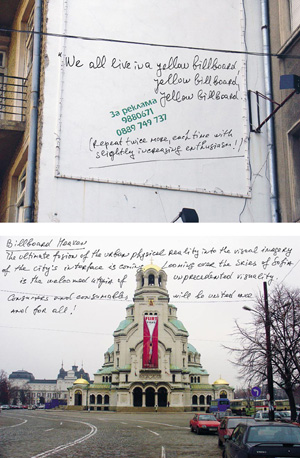 "We all live in a yellow billboard,
yellow billboard,
yellow billboard...
за реклама
9880671
0889 749 737
(Repeat twice more, each time with
slightly increasing enthusiasm!)
Billboard Heaven
The ultimate fusion of the urban physical reality into the visual imagery
of the city's interface is coming Looming over the skies of Sofia
is the welcomed affair of unprecedented visuality
Consumers and consumables will be united once
and for all!